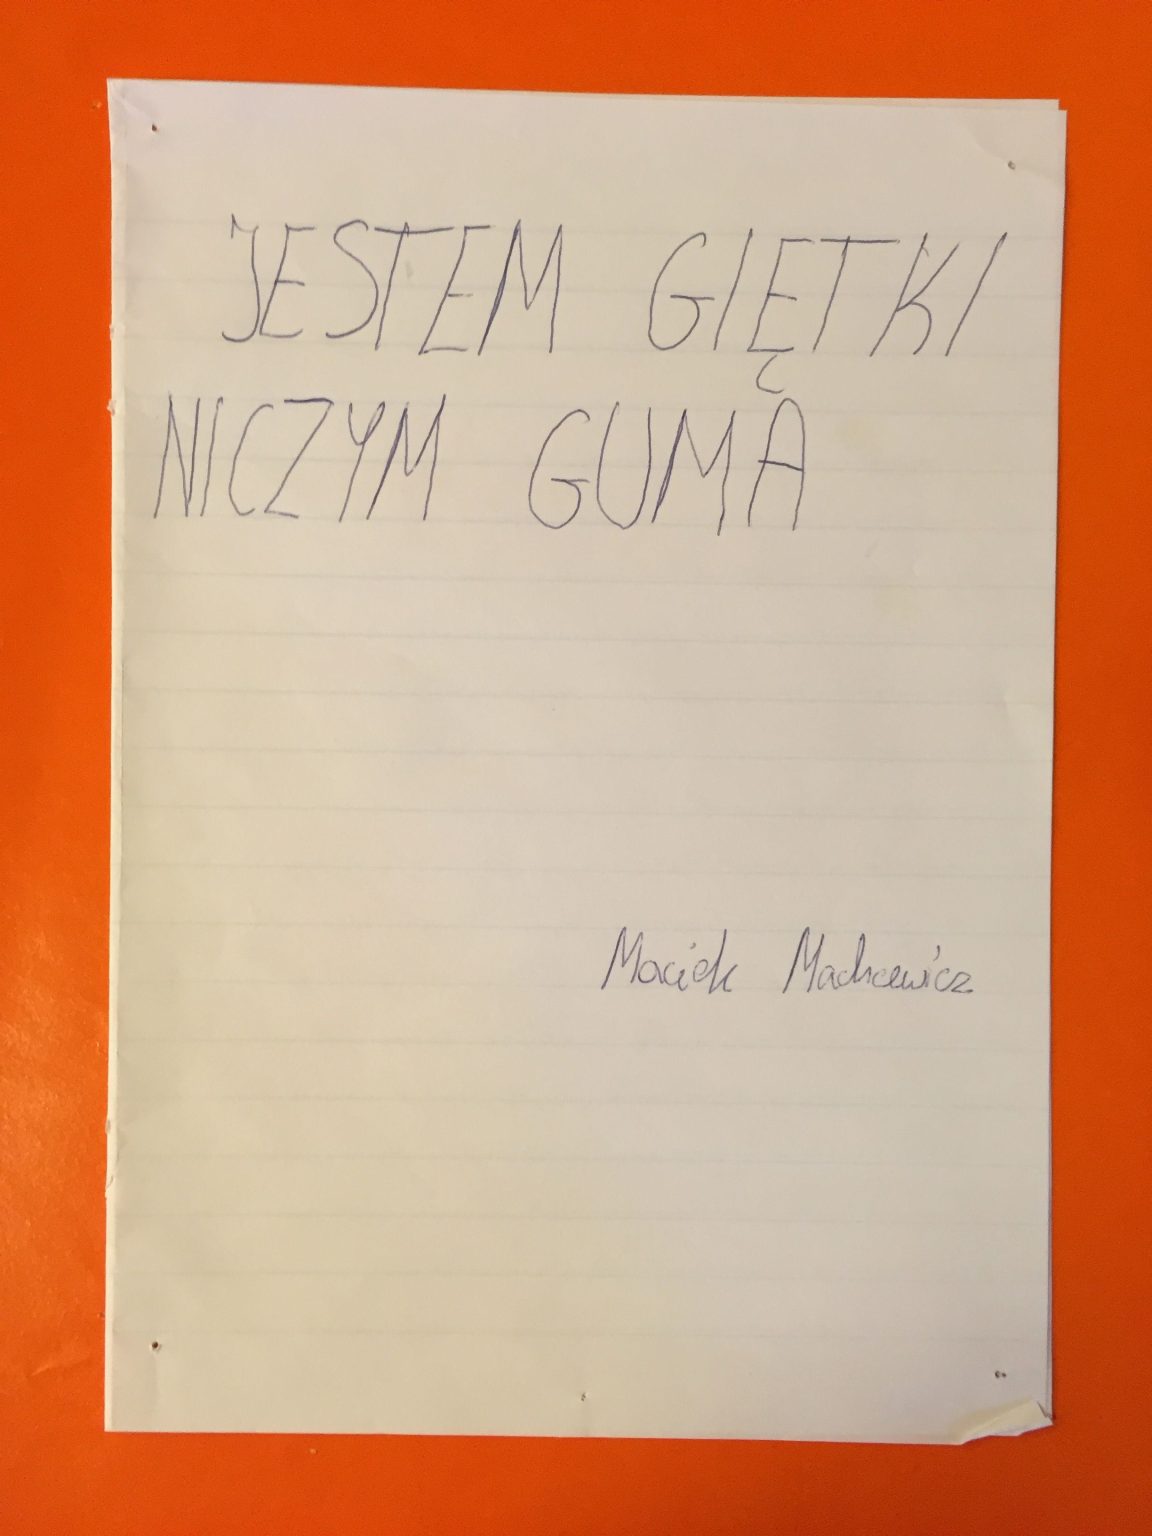 JESTEM GIĘTKI
NICZYM GUMA
Maciek Machcewicz